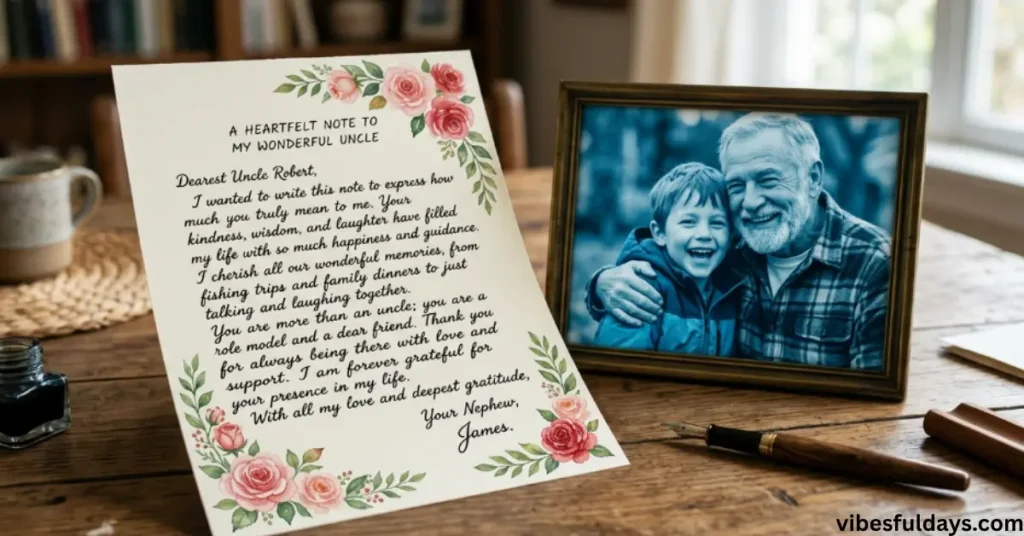 A HEARTFELT NOTE TO
MY WONDERFUL UNCLE
Dearest Uncle Robert,
I wanted to write this note to express how
much you truly mean to me. Your
kindness, wisdom, and laughter have filled
my life with so much happiness and guidance.
I cherish all our wonderful memories, from
fishing trips and family dinners to just
talking and laughing together.
You are more than an uncle; you are a
role model and a dear friend. Thank you
for always being there with love and
support. I am forever grateful for
your presence in my life.
With all my love and deepest gratitude,
Your Nephew,
James.
vibesfuldays.com